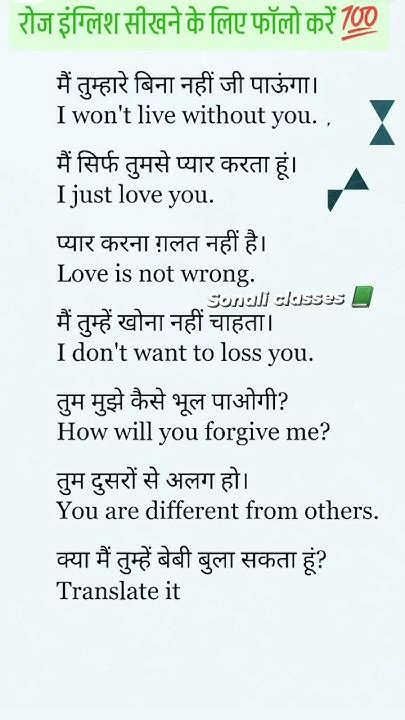 रोज इंग्लिश सीखने के लिए फॉलो करें 💯
मैं तुम्हारे बिना नहीं जी पाऊंगा।
I won't live without you. ,
मैं सिर्फ तुमसे प्यार करता हूं।
I just love you.
प्यार करना ग़लत नहीं है।
Love is not wrong.
Sonali classes 📗
मैं तुम्हें खोना नहीं चाहता।
I don't want to loss you.
तुम मुझे कैसे भूल पाओगी?
How will you forgive me?
तुम दुसरों से अलग हो।
You are different from others.
क्या मैं तुम्हें बेबी बुला सकता हूं?
Translate it